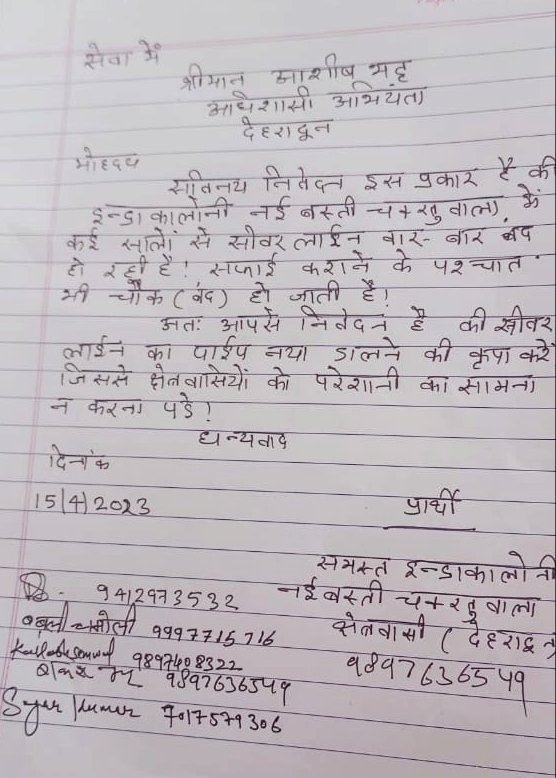 सेवा में
श्रीमान आशीष भट्ट
अधिशासी अभियंता
देहरादून
मोहदय
सविनय निवेदन इस प्रकार है की
इन्द्रा कालोनी नई बस्ती चन्द्ररतुवाला में
कई सालों से सीवर लाईन बार-बार बंद
हो रही है! सफाई कराने के पश्चात
भी चौक (बंद) हो जाती है!
अतः आपसे निवेदन है की सीवर
लाईन का पाईप नया डालने की कृपा करें
जिससे क्षेत्रवासियों को परेशानी का सामना
न करना पडे!
धन्यवाद
दिनांक
15/4/2023
प्रार्थी
समस्त इन्द्राकालोनी
नई बस्ती
क्षेत्रवासी (देहरादून)
9897636549
9412973532
9997715716
9897408322
9897636549
Kumar 7017579306